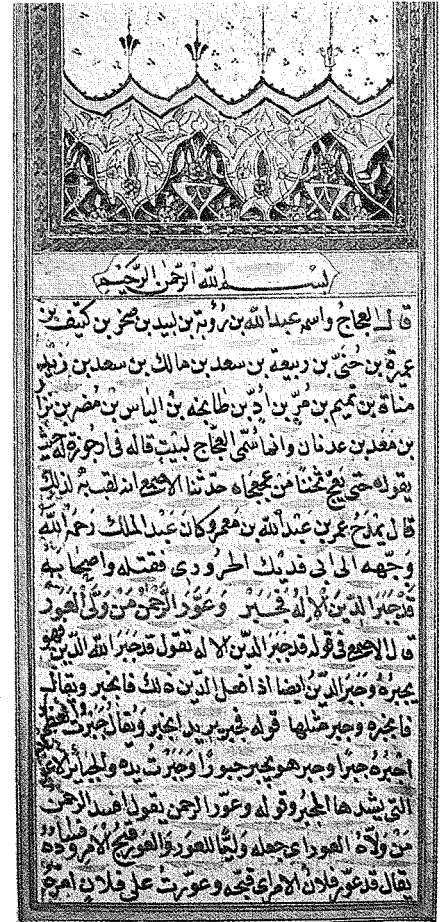 بسم الله الرحمن الرحيم
قال العجاج واسمه عبد الله بن رؤبة بن لبيد بن صخر بن كنيف بن
عميرة بن حُنَيّ بن ربيعة بن سعد بن مالك بن سعد بن زيد
مناة بن تميم بن مُرّ بن اُدّ بن طابخة بن الياس بن مضر بن نزا
بن معد بن عدنان وانما سُمّى العجاج لبيت قاله فى ارجوزة له
يقوله حتى يعج ثخنًا من عجعجا حدثنا الاصمعى انه لقب لذلك
قال يمدح عمر بن عبد الله بن معمر وكان عبد الملك رحمه الله
وجّهه الى ابى فديك الحرورى فقتله واصحابه
قد جبر الدين الاله فجبر وعوّر الرحمن من ولّى العور
قال الاصمعى فى قوله قد جبر الدين الاله تقول قد جبر الله الدين فهو
يجبره وجبر الدين ايضا اذا فعل الدين ذلك فانجبر ويقال
فانجبره وجبر مثلها قوله فجبر يريد انجبر ويقال جبرت العظم
اجبره جبرا وجبر هو يجبر جبورا وجبرت يده والجبائر
التى يشدها المجبر وقوله وعوّر الرحمن يقول افسد الرحمن
من ولّاه العور اى جعله وليًّا للعور والعور قبح الامر وفساده
يقال قد عوّر فلان الامر اى قبّحه وعوّرت على فلان امره